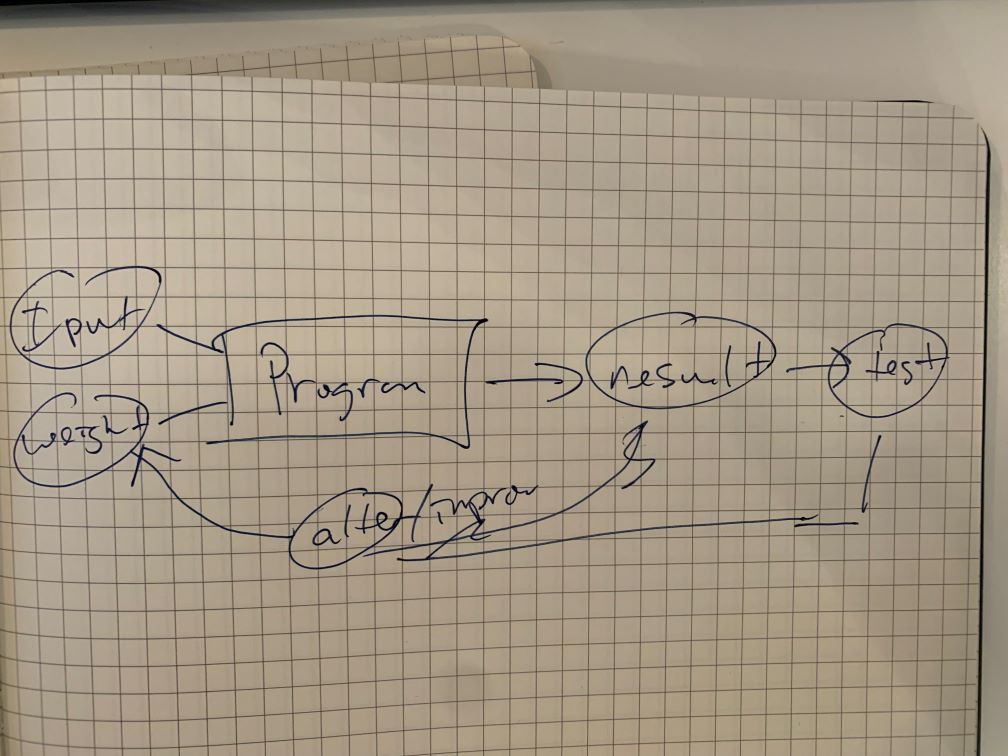 Iput
weight
Program
result
test
alter/improv